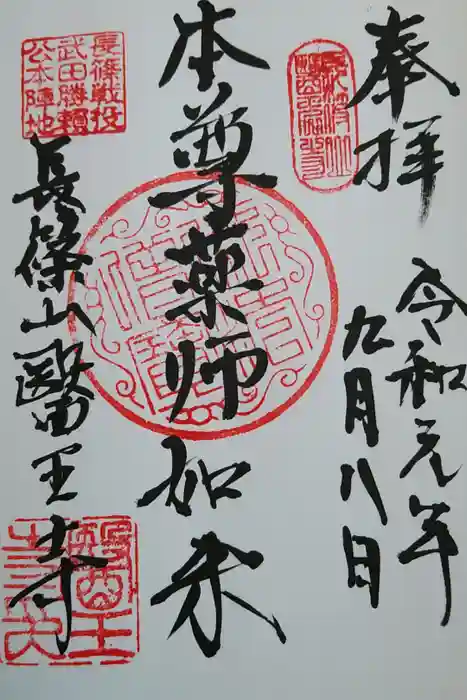 奉拝
令和元年
九月八日
本尊薬師如来
長篠戦役
武田勝頼
公本陣地
長篠山醫王寺